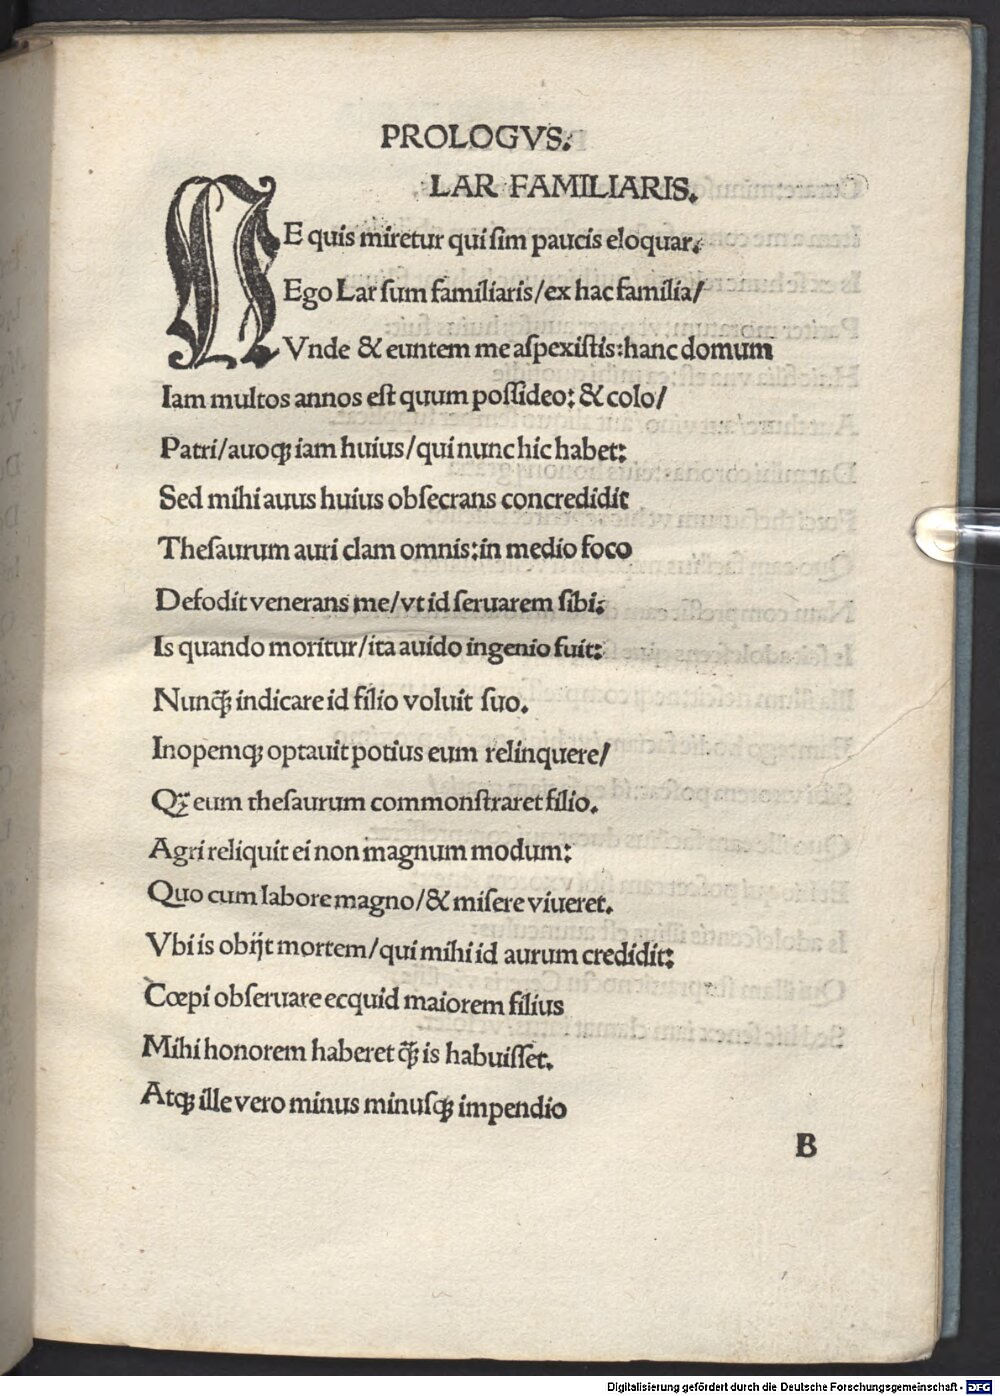 PROLOGVS.
LAR FAMILIARIS.
NE quis miretur qui sim paucis eloquar.
Ego Lar sum familiaris/ex hac familia/
Vnde & euntem me aſpexiſtis:hanc domum
Iam multos annos eſt quum poſſideo: & colo/
Patri/auoqꝫ iam huius/qui nunc hic habet:
Sed mihi auus huius obſecrans concredidit
Theſaurum auri clam omnis:in medio foco
Defodit venerans me/vt id ſeruarem ſibi.
Is quando moritur/ita auido ingenio fuit:
Nunꝙ̃ indicare id filio voluit ſuo.
Inopemqꝫ optauit potius eum relinquere/
Qꝫ eum theſaurum commonſtraret filio.
Agri reliquit ei non magnum modum:
Quo cum labore magno/& miſere viueret.
Vbi is obijt mortem/qui mihi id aurum credidit:
Cœpi obſeruare ecquid maiorem filius
Mihi honorem haberet ꝙ̃ is habuiſſet.
Atqꝫ ille vero minus minuſqꝫ impendio
B
Digitalisierung gefördert durch die Deutsche Forschungsgemeinschaft - DFG